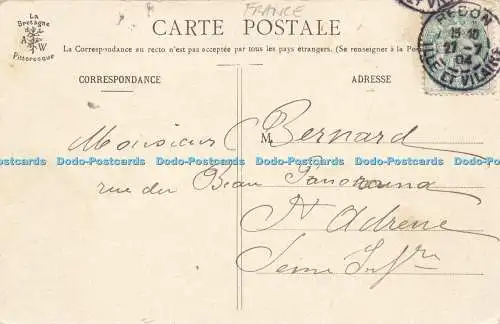 FRANCE
La
Bretagne
A W
Pittoresque
CARTE POSTALE
La Correspondance au recto n'est pas acceptée par tous les pays étrangers. (Se renseigner à la Poste
CORRESPONDANCE
ADRESSE
REDON
15 10
27 -7
04
ILLE ET VILAINE
Monsieur M. Bernard
Dodo-Postcards Dodo-Postcards Dodo-Postcards Dodo-Postcards Dodo-Postcards Dodo-Postcards
rue du Beau Panorama
St Adresse
Seine Infre